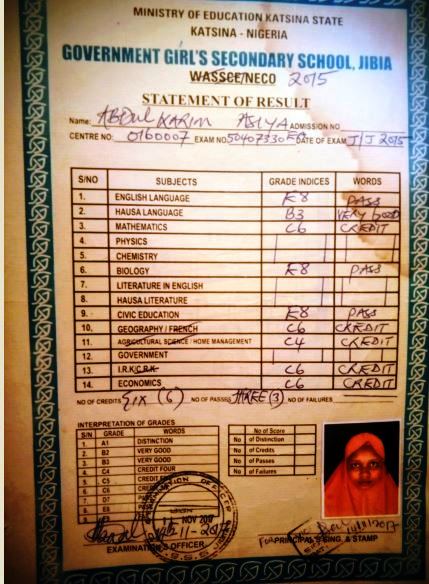 MINISTRY OF EDUCATION KATSINA STATE
KATSINA - NIGERIA
GOVERNMENT GIRL'S SECONDARY SCHOOL, JIBIA
WASSCE/NECO 2015
STATEMENT OF RESULT
Name: ABDUL KARIM ASIYA ADMISSION NO
CENTRE NO: 0160007 EXAM NO 50407330EG DATE OF EXAM J/J 2015
S/NO SUBJECTS GRADE INDICES WORDS
1. ENGLISH LANGUAGE E8 PASS
2. HAUSA LANGUAGE B3 VERY good
3. MATHEMATICS C6 CREDIT
4. PHYSICS
5. CHEMISTRY
6. BIOLOGY E8 PASS
7. LITERATURE IN ENGLISH
8. HAUSA LITERATURE
9. CIVIC EDUCATION E8 PASS
10. GEOGRAPHY / FRENCH C6 CREDIT
11. AGRICULTURAL SCIENCE / HOME MANAGEMENT C4 CREDIT
12. GOVERNMENT
13. I.R.K/C.R.K C6 CREDIT
14. ECONOMICS C6 CREDIT
NO OF CREDITS SIX (6) NO OF PASSES THREE (3) NO OF FAILURES
INTERPRETATION OF GRADES
S/N GRADE WORDS
1. A1 DISTINCTION
2. B2 VERY GOOD
3. B3 VERY GOOD
4. C4 CREDIT FOUR
5. C5 CREDIT
6. C6
7. D7
8. E8
No of Score
No of Distinction
No of Credits
No of Passes
No of Failures
NOV 2017
EXAMINATION OFFICER
For PRINCIPAL'S SING. & STAMP